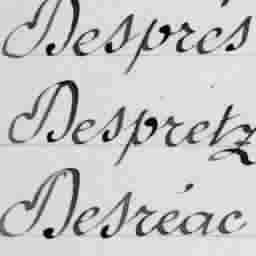 Desprès
Despretz
Desréac